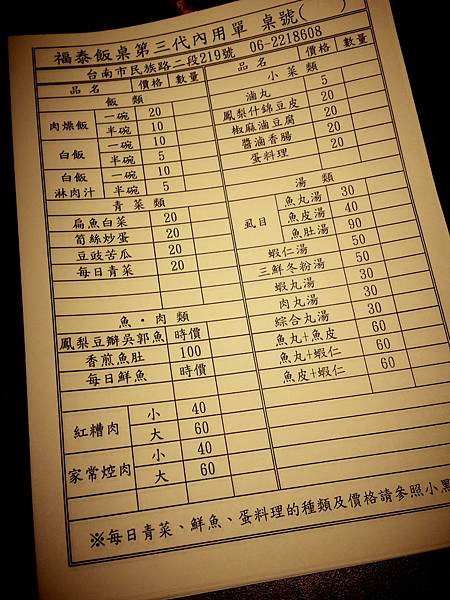 福泰飯桌第三代內用單 桌號( )
台南市民族路二段219號 06-2218608
品名 價格 數量
飯類
肉燥飯 一碗 20
半碗 10
白飯 一碗 10
半碗 5
白飯淋肉汁 一碗 10
半碗 5
青菜類
扁魚白菜 20
筍絲炒蛋 20
豆豉苦瓜 20
每日青菜 20
魚‧肉類
鳳梨豆瓣吳郭魚 時價
香煎魚肚 100
每日鮮魚 時價
紅糟肉 小 40
大 60
家常焢肉 小 40
大 60
品名 價格 數量
小菜類
滷丸 5
鳳梨什錦豆皮 20
椒麻滷豆腐 20
醬滷香腸 20
蛋料理 20
湯類
虱目 魚丸湯 30
魚皮湯 40
魚肚湯 90
蝦仁湯 50
三鮮冬粉湯 50
蝦丸湯 30
肉丸湯 30
綜合丸湯 30
魚丸+魚皮 60
魚丸+蝦仁 60
魚皮+蝦仁 60
※每日青菜、鮮魚、蛋料理的種類及價格請參照小黑